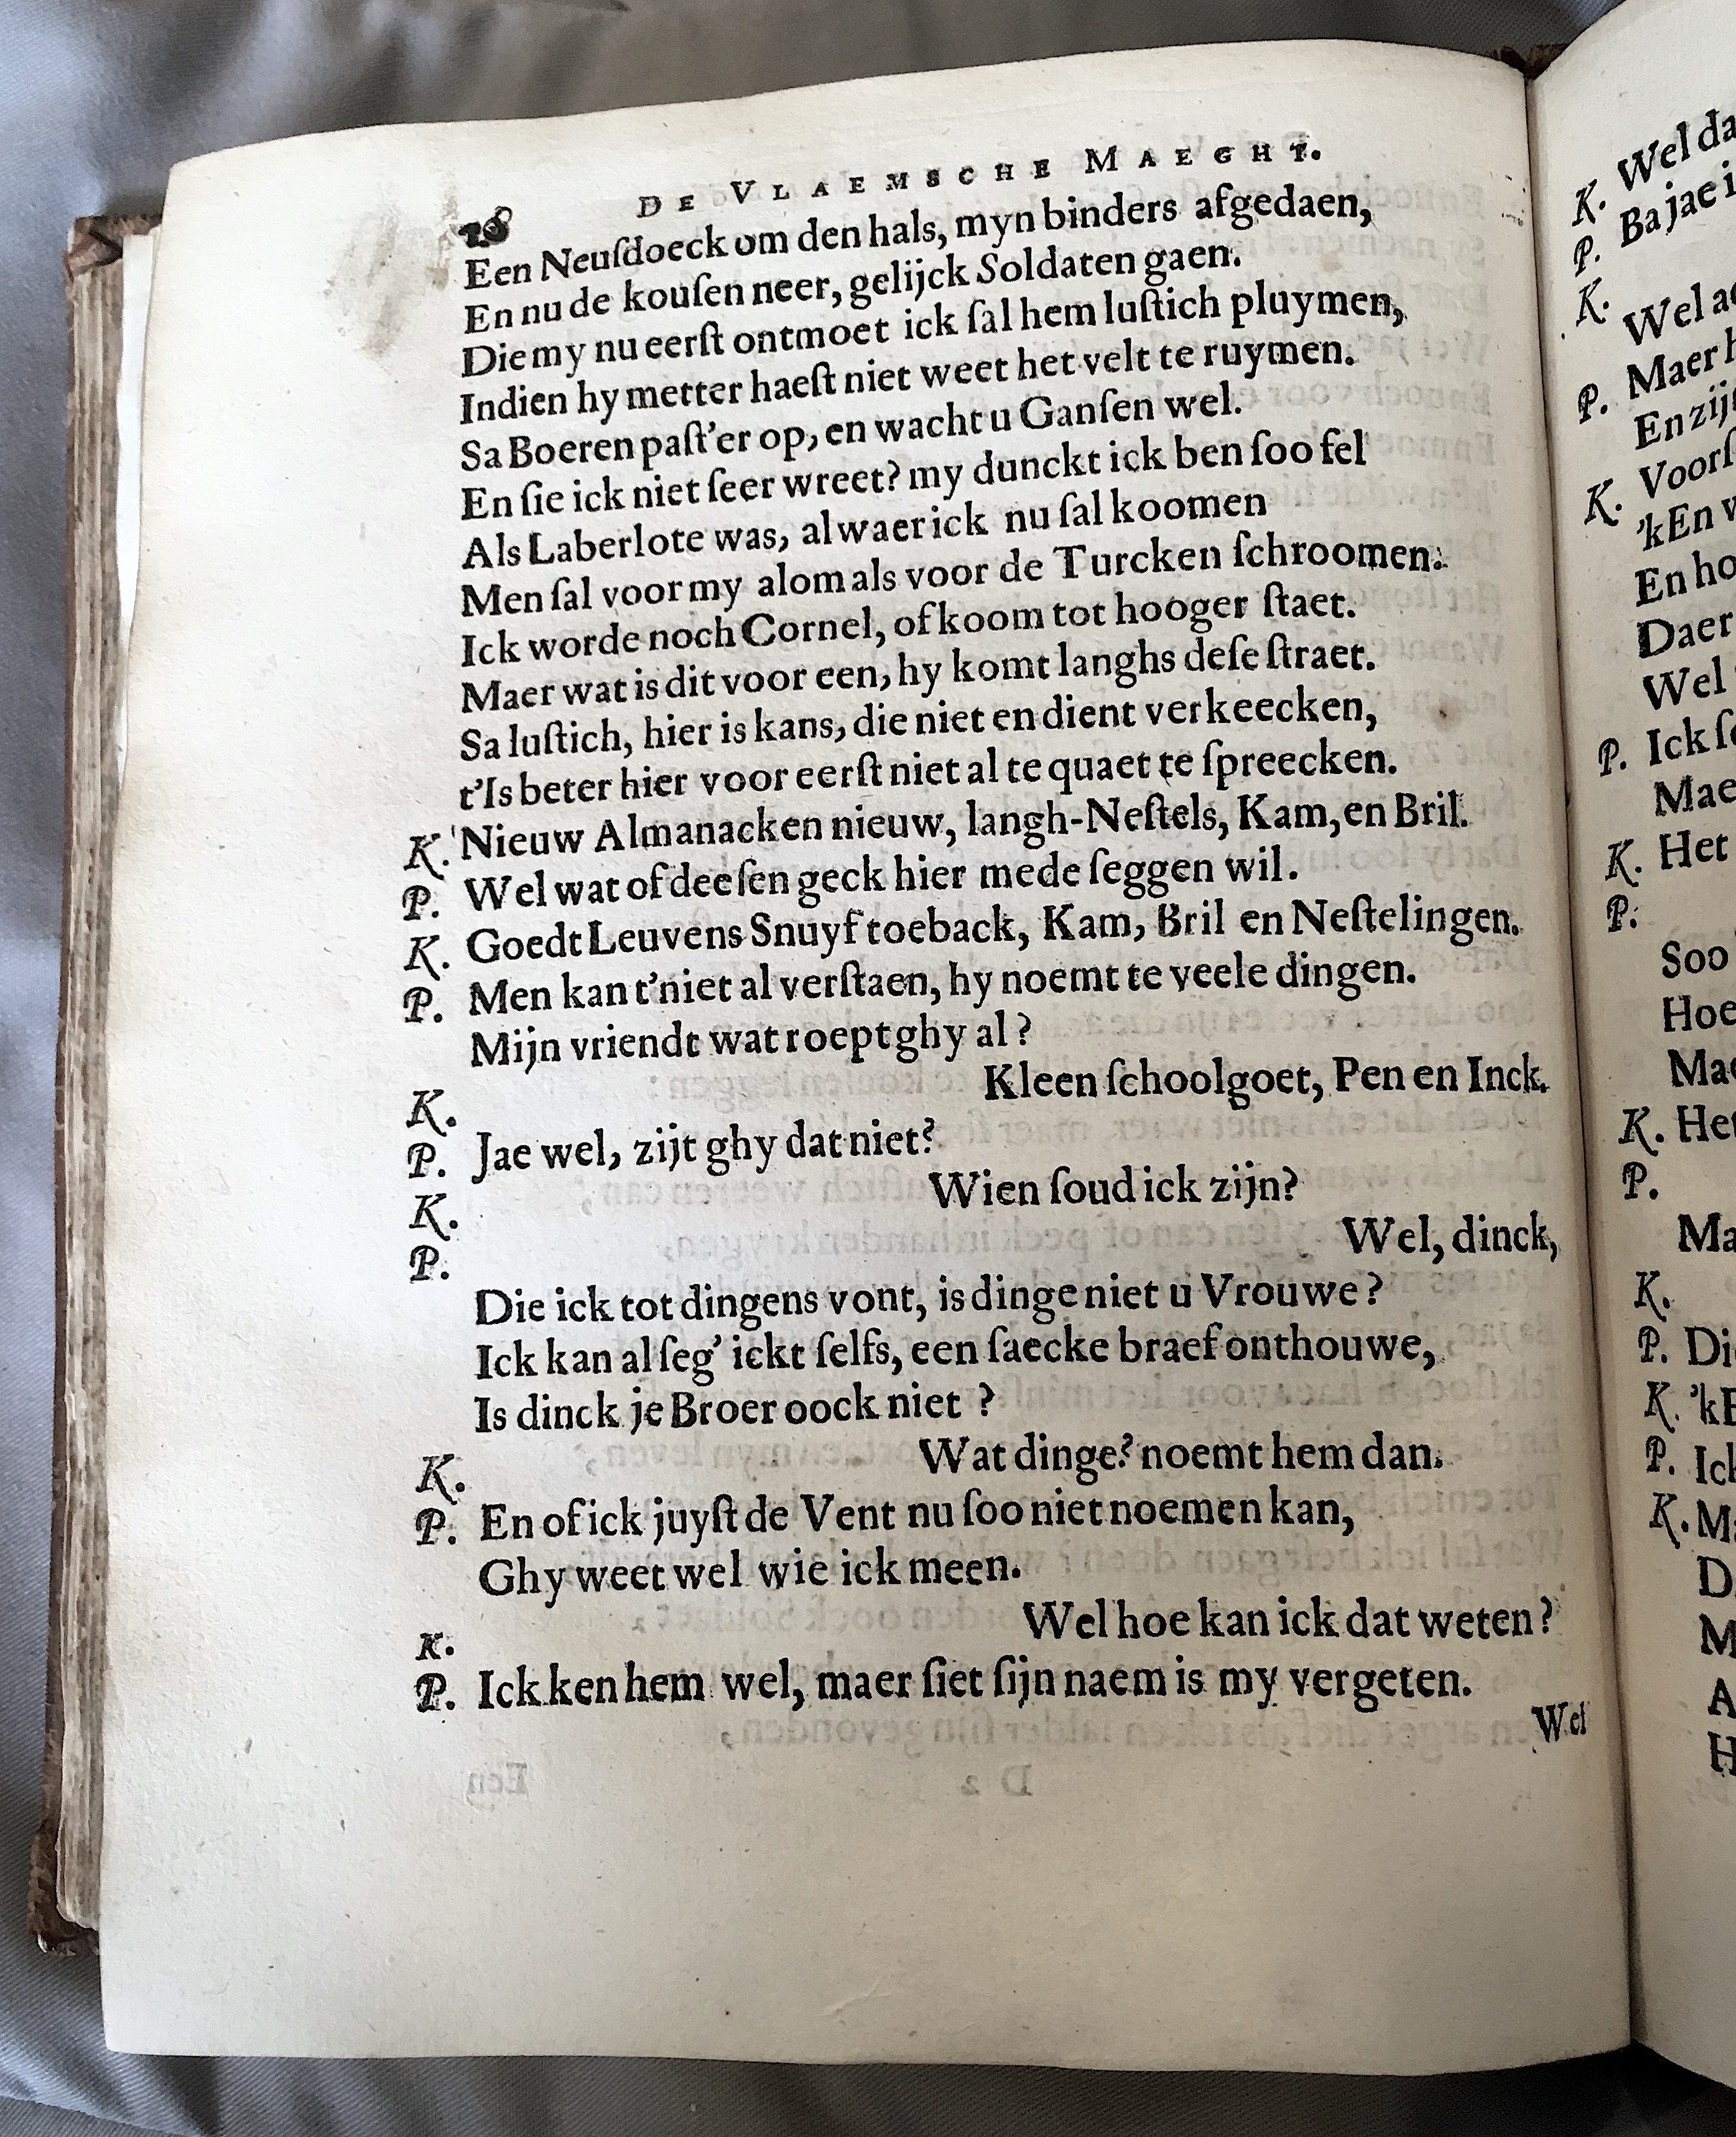 DE VLAEMSCHE MAEGHT.
28
Een Neuſdoeck om den hals, myn binders afgedaen,
En nu de kouſen neer, gelijck Soldaten gaen.
Die my nu eerſt ontmoet ick ſal hem luſtich pluymen,
Indien hy metter haeſt niet weet het velt te ruymen.
Sa Boeren paſt'er op, en wacht u Ganſen wel.
En ſie ick niet ſeer wreet? my dunckt ick ben ſoo fel
Als Laberlote was, alwaer ick nu ſal koomen
Men ſal voor my alom als voor de Turcken ſchroomen.
Ick worde noch Cornel, of koom tot hooger ſtaet.
Maer wat is dit voor een, hy komt langhs deſe ſtraet.
Sa luſtich, hier is kans, die niet en dient verkeecken,
t'Is beter hier voor eerſt niet al te quaet te ſpreecken.
K. 'Nieuw Almanack en nieuw, langh-Neſtels, Kam, en Bril.
P. Wel wat of deeſen geck hier mede ſeggen wil.
K. Goedt Leuvens Snuyf toeback, Kam, Bril en Neſtelingen.
P. Men kan t'niet al verſtaen, hy noemt te veele dingen.
Mijn vriendt wat roept ghy al?
K. Kleen ſchoolgoet, Pen en Inck.
P. Jae wel, zijt ghy dat niet?
K. Wien ſoud ick zijn?
P. Wel, dinck,
Die ick tot dingens vont, is dinge niet u Vrouwe?
Ick kan al ſeg' ickt ſelfs, een ſaecke braef onthouwe,
Is dinck je Broer oock niet?
K. Wat dinge? noemt hem dan.
P. En of ick juyſt de Vent nu ſoo niet noemen kan,
Ghy weet wel wie ick meen.
K. Wel hoe kan ick dat weten?
P. Ick ken hem wel, maer ſiet ſijn naem is my vergeten.
Wel
K. Wel
P. Ba jae
K.
Wel
P. Maer
En
K.
'kEn
En
Daer
Wel
P. Ick
K. Het
P.
Soo
Hoe
K. Het
P.
K.
P.
K.
P.
K.